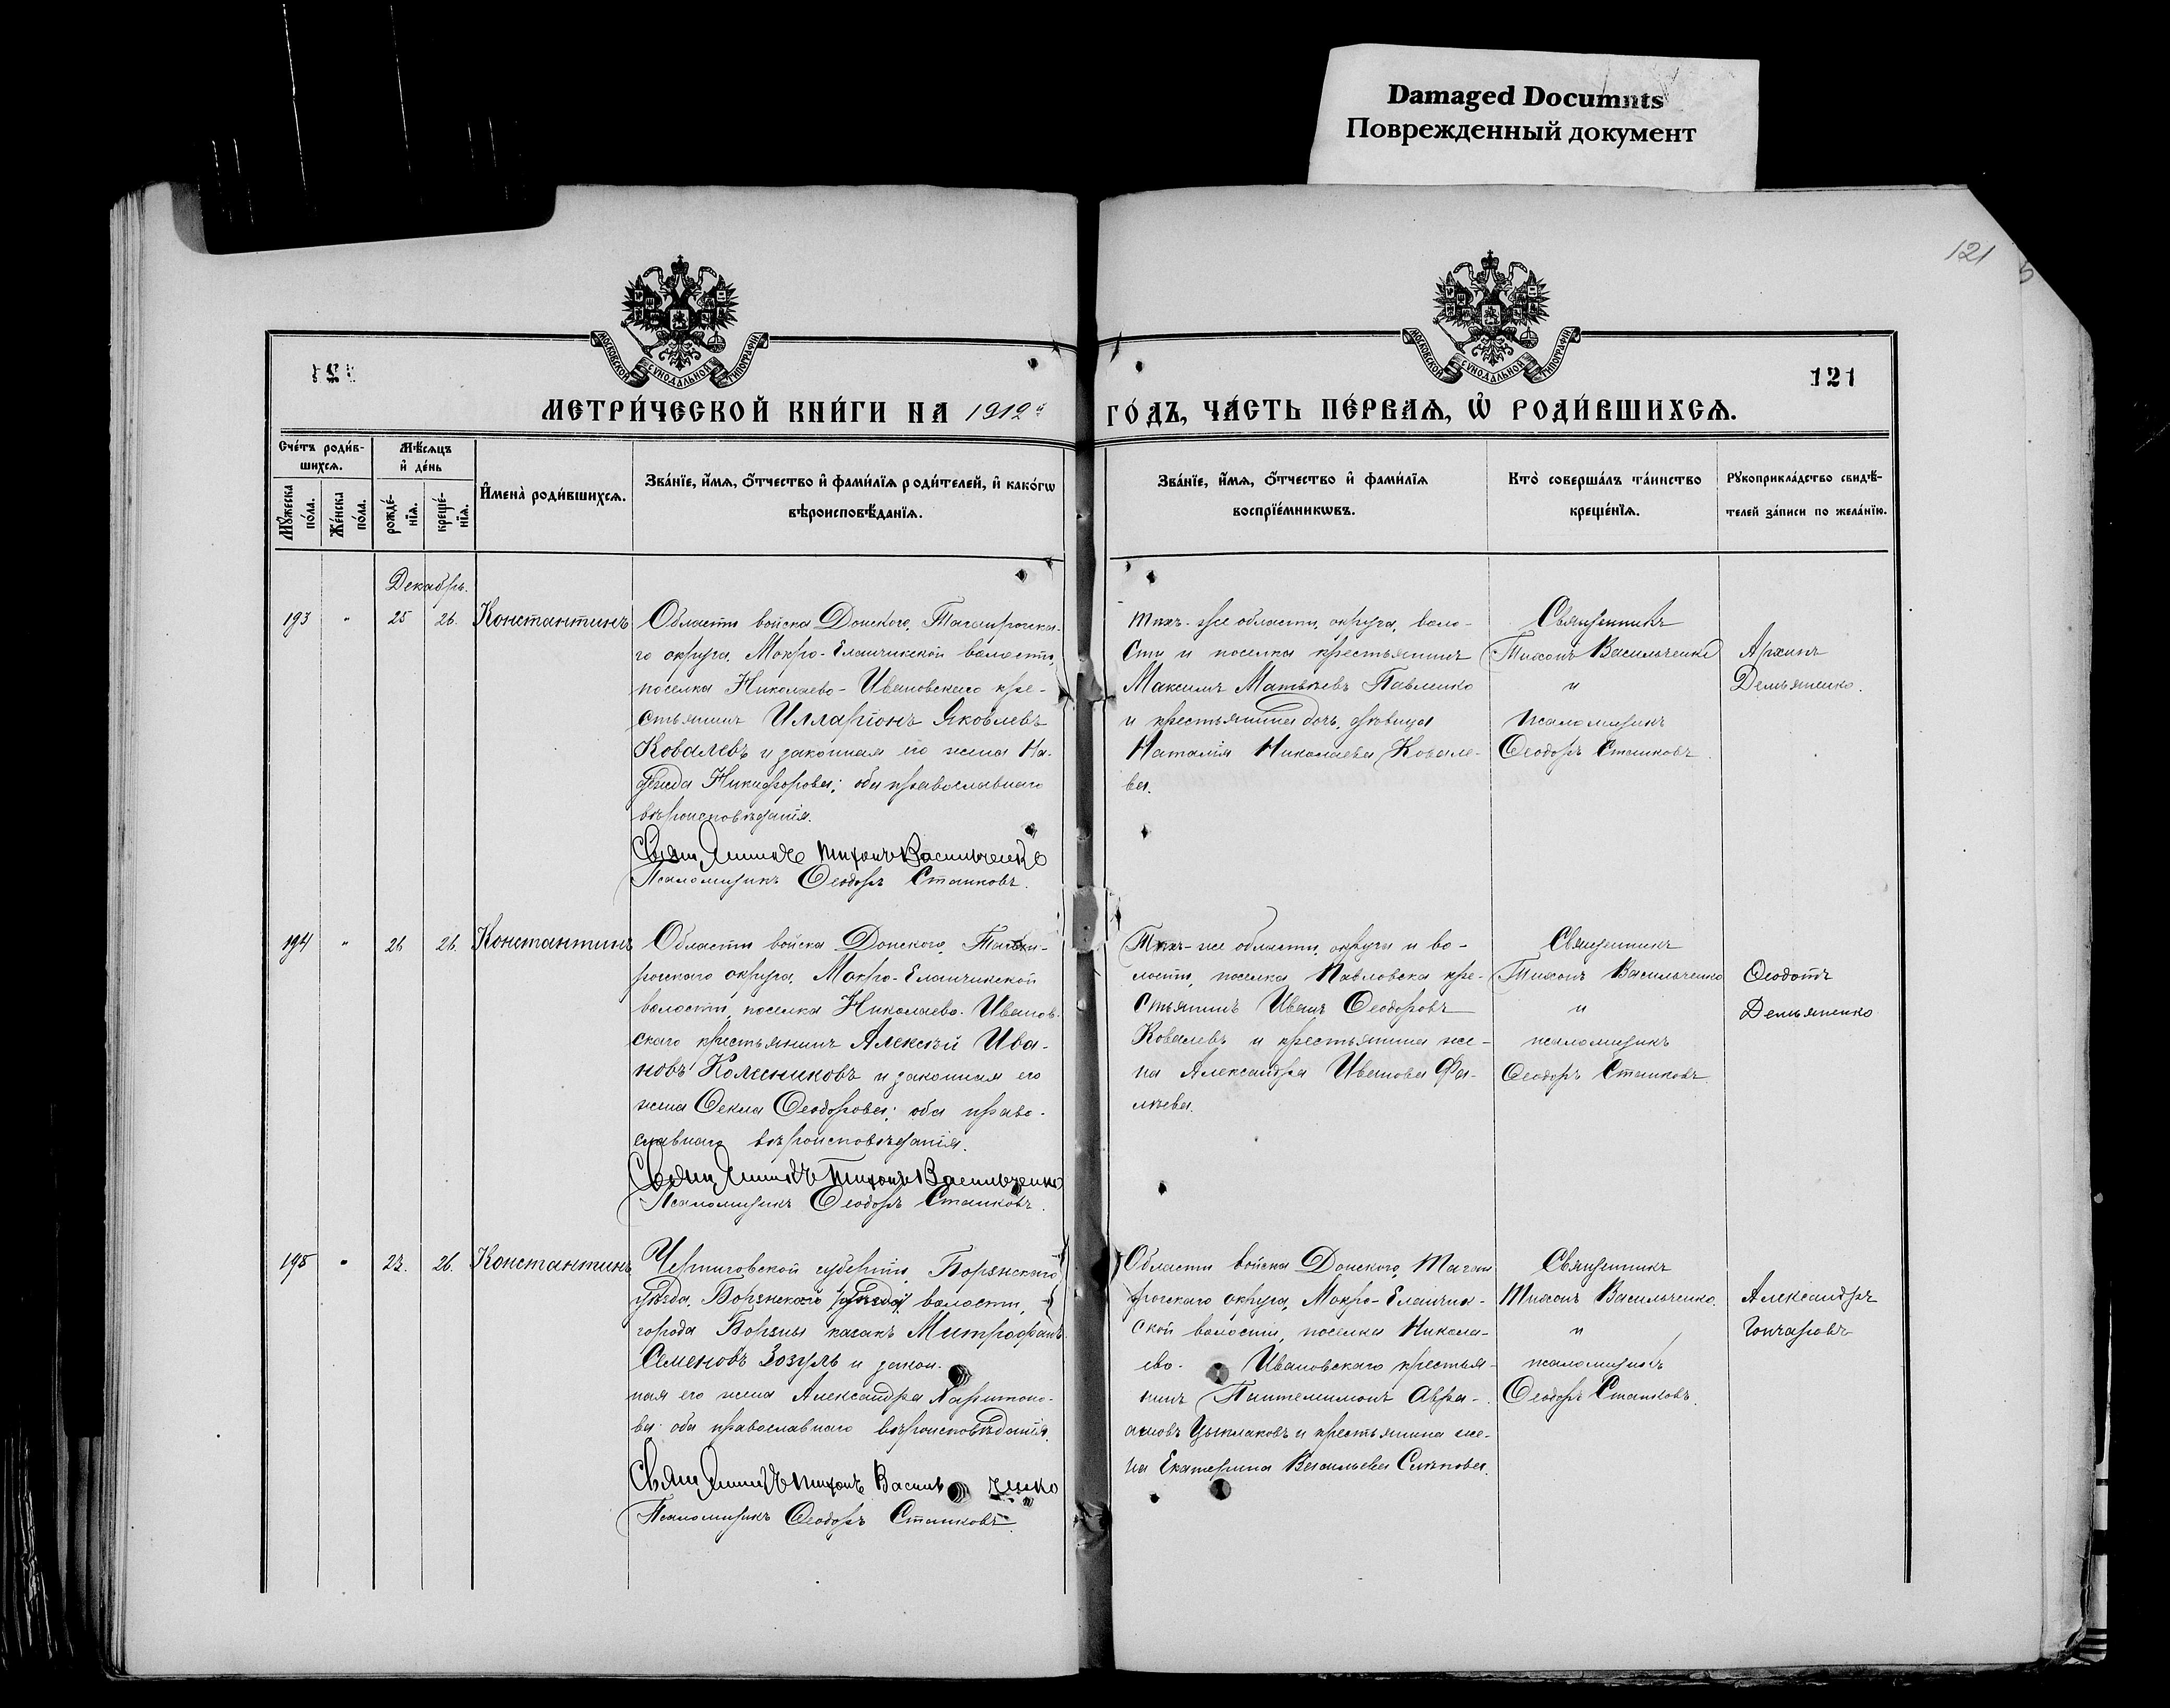 Damaged Documnts
Поврежденный документ
121
121
МОСКОВСКОЙ СУНОДАЛЬНОЙ ТИПОГРАФІИ
МОСКОВСКОЙ СУНОДАЛЬНОЙ ТИПОГРАФІИ
МЕТРИ́ЧЕСКОЙ КНИ́ГИ НА 1912й
ГО́ДЪ, ЧА́СТЬ ПЕ́РВАѦ, Ѽ РОДИ́ВШИХСѦ.
Сче́тъ роди́в-
шихсѧ.
Мꙋ́жеска
по́ла.
Же́нска
по́ла.
Мѣ́сѧцъ
и҆ де́нь
рожде́-
нїѧ.
креще́-
нїѧ.
И҆мена̀ роди́вшихсѧ.
Зва́нїе, и҆́мѧ, ѻ҆́тчество и҆ фами́лїѧ роди́телей, и҆ како́гѡ
вѣроисповѣ́данїѧ.
Зва́нїе, и҆́мѧ, ѻ҆́тчество и҆ фами́лїѧ
воспрїе́мникѡвъ.
Кто̀ соверша́лъ та́инство
креще́нїѧ.
Рꙋкоприкла́дство свидѣ́-
телей за́писи по жела́нїю.
Декабрь.
193 " 25 26. Константинъ
Области войска Донского, Таганрогска-
го округа, Мокро-Еланчикской волости,
поселка Николаево-Ивановскаго кре-
стьянинъ Илларіонъ Яковлевъ
Ковалевъ и законная его жена На-
дежда Никифорова; оба православнаго
вѣроисповѣданія.
Священникъ Тихонъ Васильченко
Псаломщикъ Ѳеодоръ Станковъ.
Тѣхъ-же области, округа, воло-
сти и поселка крестьянинъ
Максимъ Матвѣевъ Павленко
и крестьянина дочь, дѣвица
Наталія Николаева Ковале-
ва.
Священникъ
Тихонъ Васильченко
и
псаломщикъ
Ѳеодоръ Станковъ.
Архипъ
Демьяненко.
194 " 26 26. Константинъ
Области войска Донского, Таган-
рогскаго округа, Мокро-Еланчикской
волости, поселка Николаево-Иванов-
скаго крестьянинъ Алексѣй Ива-
новъ Колесниковъ и законная его
жена Ѳекла Ѳеодорова; оба право-
славнаго вѣроисповѣданія.
Священникъ Тихонъ Васильченко
Псаломщикъ Ѳеодоръ Станковъ.
Тѣхъ-же области, округа и во-
лости, поселка Павловска кре-
стьянинъ Иванъ Ѳеодоровъ
Ковалевъ и крестьянина же-
на Александра Иванова Фа-
лѣева.
Священникъ
Тихонъ Васильченко
и
псаломщикъ
Ѳеодоръ Станковъ.
Ѳеодотъ
Демьяненко
195 " 23. 26. Константинъ
Черниговской губерніи, Борзенскаго
уѣзда, Борзенской волости,
города Борзны казакъ Митрофанъ
Семеновъ Зозуль и закон-
ная его жена Александра Харитоно-
ва; оба православнаго вѣроисповѣданія.
Священникъ Тихонъ Васильченко
Псаломщикъ Ѳеодоръ Станковъ.
Области войска Донского, Таган-
рогскаго округа, Мокро-Еланчик-
ской волости, поселка Никола-
ево-Ивановскаго крестья-
нинъ Пантелимонъ Авра-
амовъ Цыплаковъ и крестьянина же-
на Екатерина Васильева
Священникъ
Тихонъ Васильченко.
и
псаломщикъ
Ѳеодоръ Станковъ.
Александръ
Гончаровъ